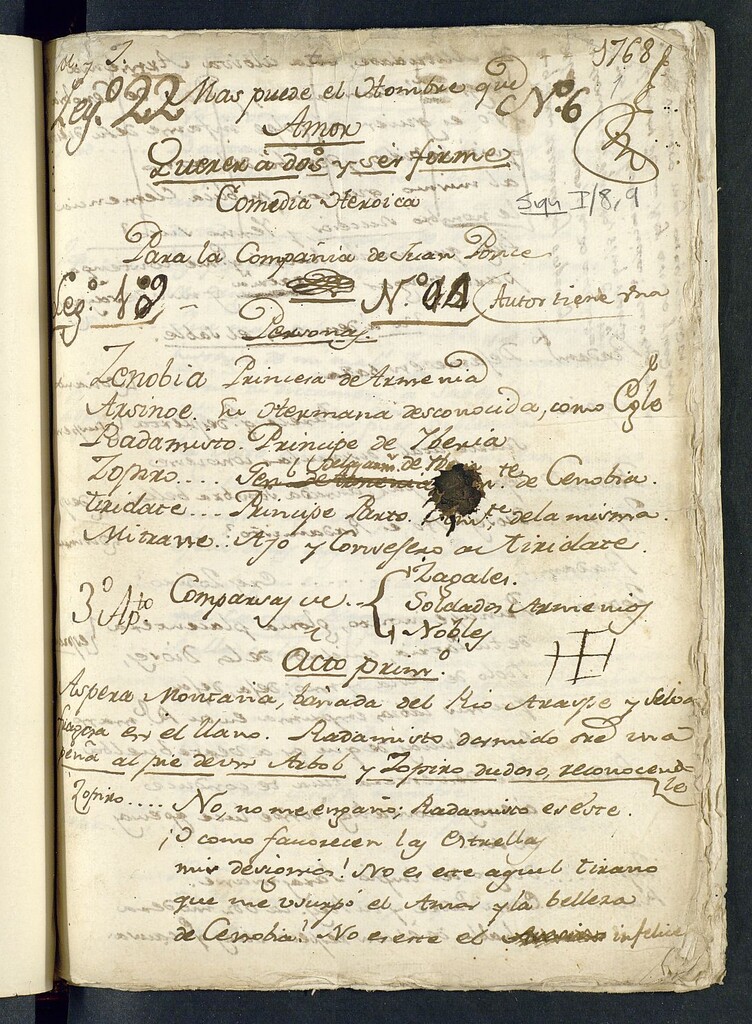 1768
Leg.º 22 Mas puede el Hombre que Nº 6
Amor
Querer a dos y ser firme
Comedia Heroica
Sign I/8,9
Para la Compañia de Juan Ponce
Leg.º 18 N.º 11 (Autor tiene una
Personas.
Zenobia Princesa de Armenia
Arsinoe. Su Hermana desconocida, como Egle
Radamisto. Principe de Yberia
Zopiro.... Gen.l de Armenia te. de Cenobia.
Tiridate... Principe Parto te de la misma.
Mitrane.. Ayo y Consegero de Tiridate.
3º Ap.to Comparsas de.. Zagales.
Soldados Armenios
y Nobles
Acto prim.º
Aspera Montaña, bañada del Rio Araspe y Selva
fragosa en el llano. Radamisto dormido sre una
peña al pie de un Arbol y Zopiro dudoso, reconociendo
le
Zopiro.... No, no me engaño; Radamisto es este.
¡O como favorecen las Estrellas
mis designios! No es este aquel tirano
que me usurpó el Amor y la belleza
de Cenobia? No es este el infelice